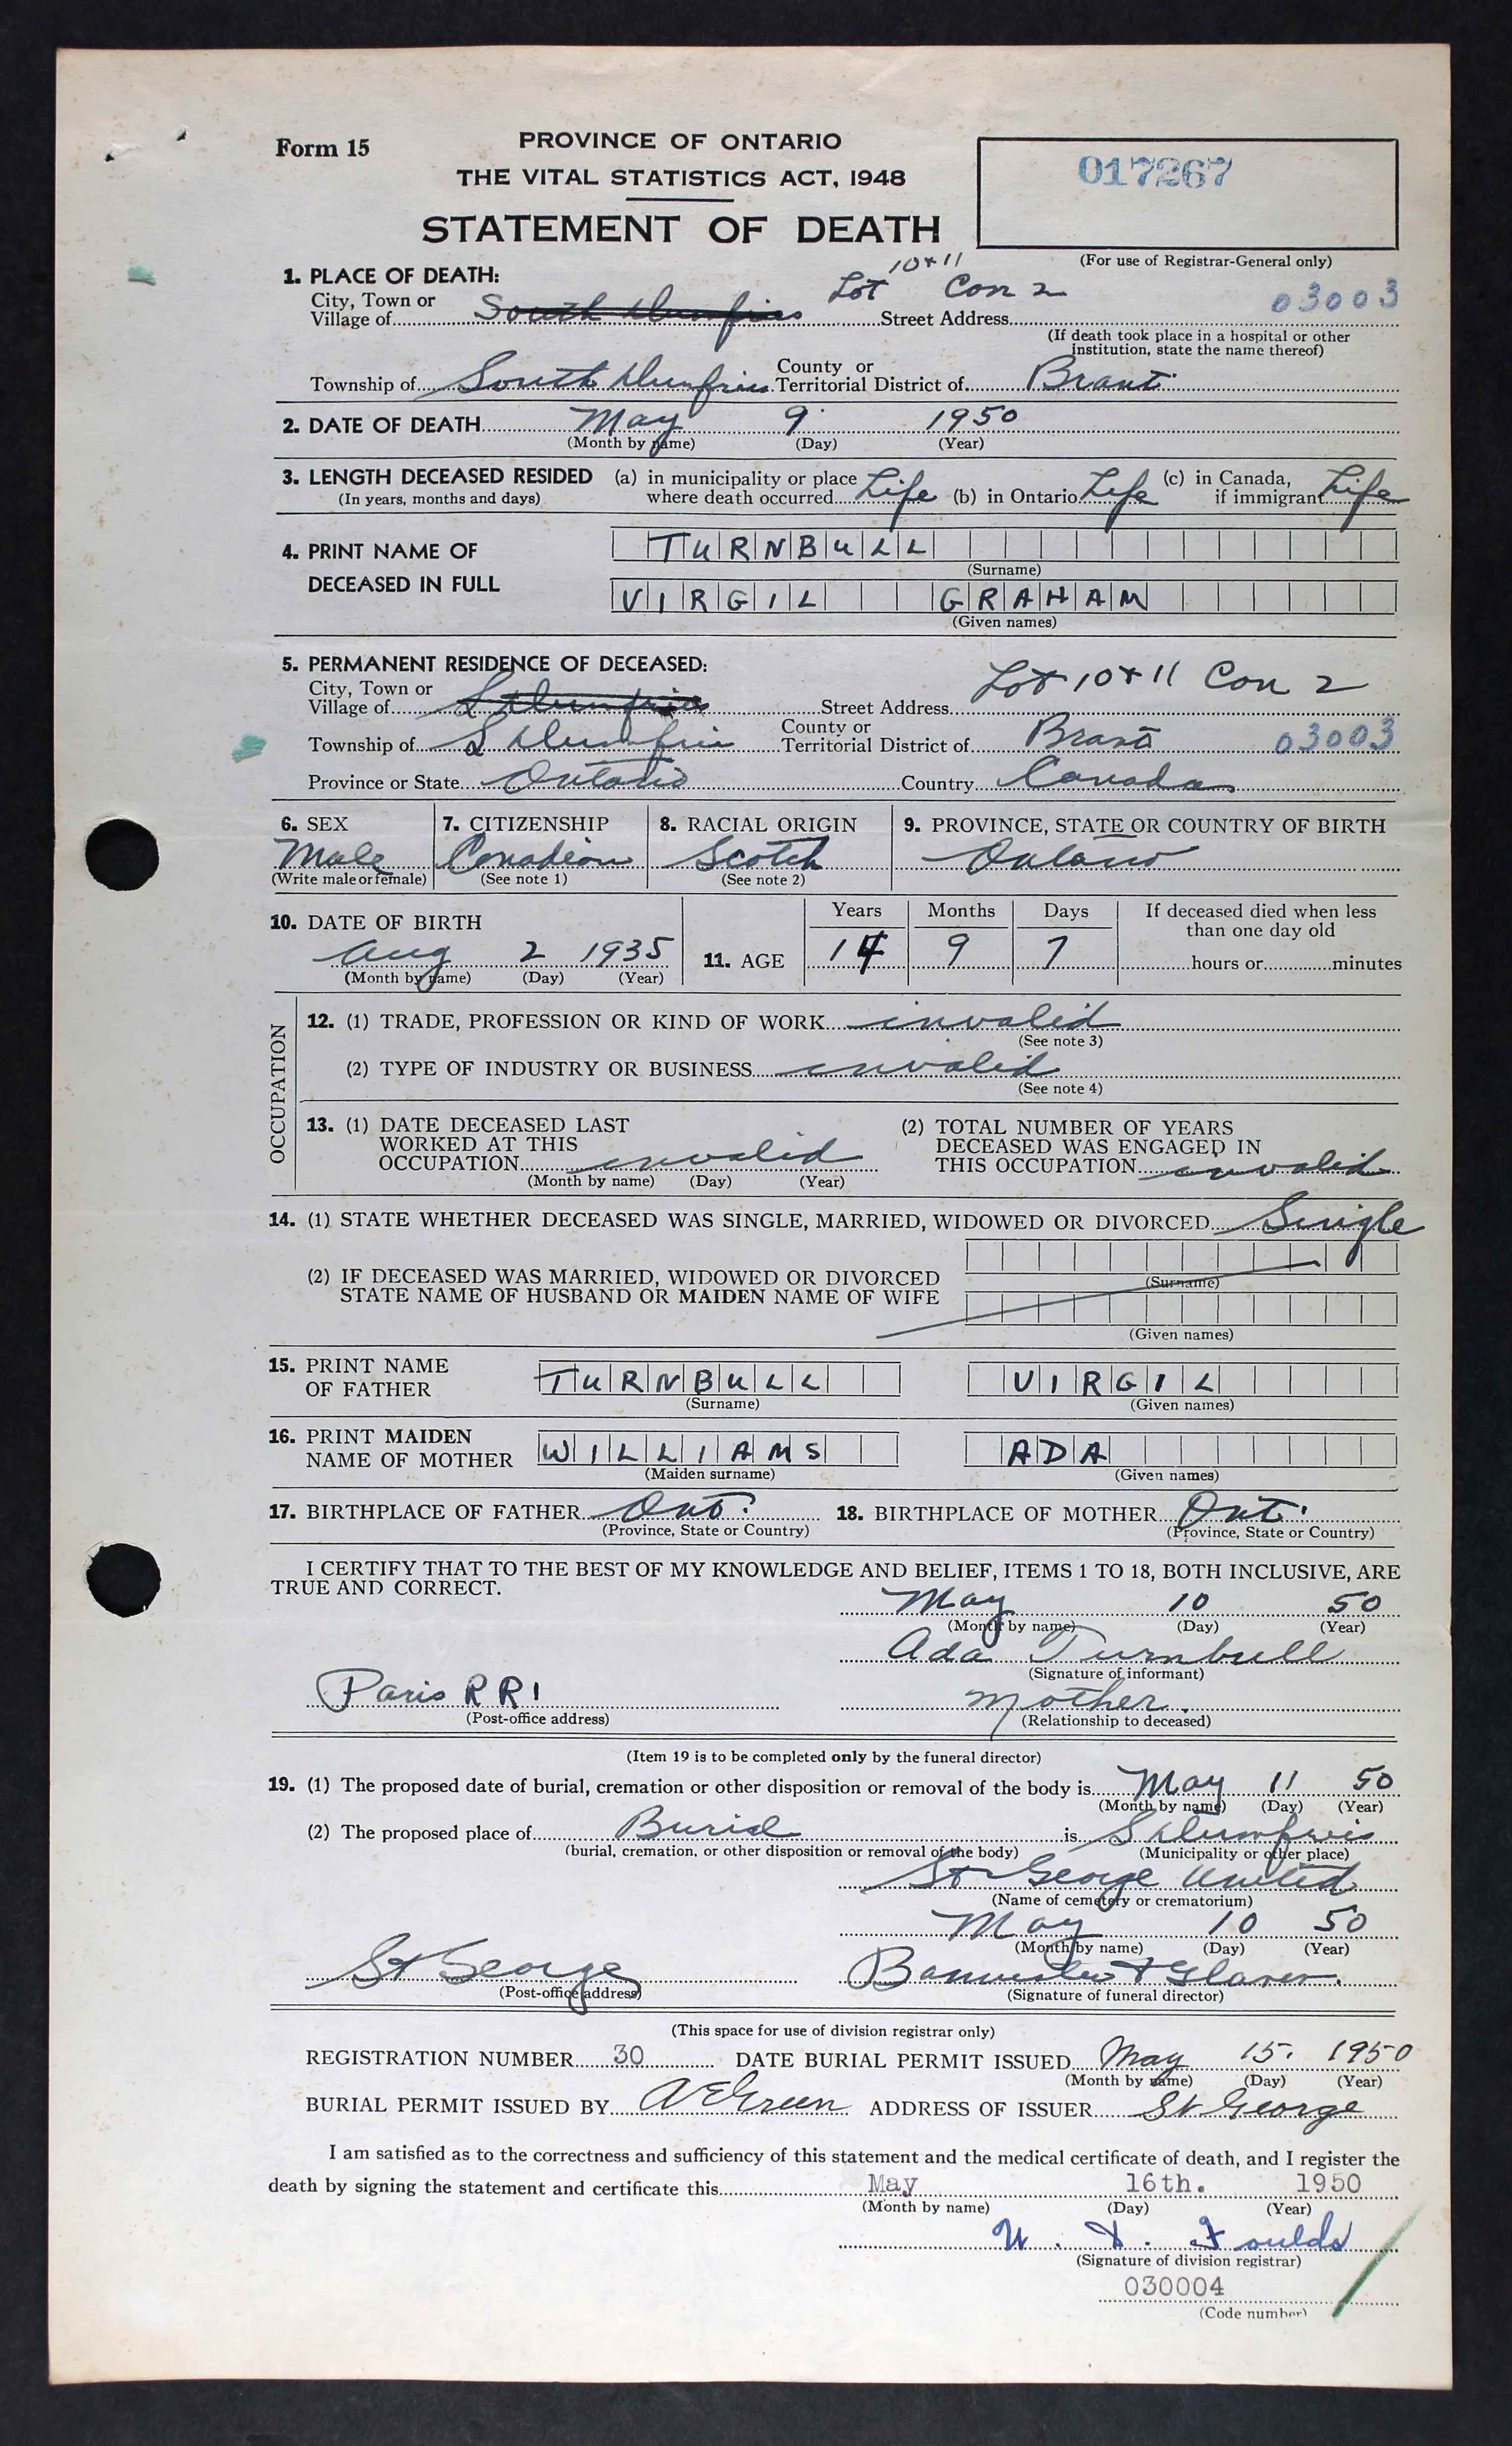 Form 15
PROVINCE OF ONTARIO
THE VITAL STATISTICS ACT, 1948
STATEMENT OF DEATH
017267
(For use of Registrar-General only)
1. PLACE OF DEATH:
City, Town or Village of South Dumfries Lot 10 & 11 Con 2 Street Address 03003
(If death took place in a hospital or other institution, state the name thereof)
Township of South Dumfries County or Territorial District of Brant
2. DATE OF DEATH May 9 1950
(Month by name) (Day) (Year)
3. LENGTH DECEASED RESIDED (a) in municipality or place where death occurred Life (b) in Ontario Life (c) in Canada, if immigrant Life
(In years, months and days)
4. PRINT NAME OF DECEASED IN FULL
TURNBULL
(Surname)
VIRGIL GRAHAM
(Given names)
5. PERMANENT RESIDENCE OF DECEASED:
City, Town or Village of S Dumfries Street Address Lot 10 & 11 Con 2
Township of S Dumfries County or Territorial District of Brant 03003
Province or State Ontario Country Canada
6. SEX 7. CITIZENSHIP 8. RACIAL ORIGIN 9. PROVINCE, STATE OR COUNTRY OF BIRTH
Male Canadian Scotch Ontario
(Write male or female) (See note 1) (See note 2)
10. DATE OF BIRTH
Aug 2 1935
(Month by name) (Day) (Year)
11. AGE
Years Months Days
14 9 7
If deceased died when less than one day old
hours or minutes
OCCUPATION
12. (1) TRADE, PROFESSION OR KIND OF WORK invalid
(See note 3)
(2) TYPE OF INDUSTRY OR BUSINESS invalid
(See note 4)
13. (1) DATE DECEASED LAST WORKED AT THIS OCCUPATION invalid
(Month by name) (Day) (Year)
(2) TOTAL NUMBER OF YEARS DECEASED WAS ENGAGED IN THIS OCCUPATION invalid
14. (1) STATE WHETHER DECEASED WAS SINGLE, MARRIED, WIDOWED OR DIVORCED Single
(2) IF DECEASED WAS MARRIED, WIDOWED OR DIVORCED STATE NAME OF HUSBAND OR MAIDEN NAME OF WIFE
(Surname)
(Given names)
15. PRINT NAME OF FATHER TURNBULL VIRGIL
(Surname) (Given names)
16. PRINT MAIDEN NAME OF MOTHER WILLIAMS ADA
(Maiden surname) (Given names)
17. BIRTHPLACE OF FATHER Ont. 18. BIRTHPLACE OF MOTHER Ont.
(Province, State or Country) (Province, State or Country)
I CERTIFY THAT TO THE BEST OF MY KNOWLEDGE AND BELIEF, ITEMS 1 TO 18, BOTH INCLUSIVE, ARE
TRUE AND CORRECT.
May 10 50
(Month by name) (Day) (Year)
Ada Turnbull
(Signature of informant)
Paris RR1 mother
(Post-office address) (Relationship to deceased)
(Item 19 is to be completed only by the funeral director)
19. (1) The proposed date of burial, cremation or other disposition or removal of the body is May 11 50
(Month by name) (Day) (Year)
(2) The proposed place of Burial is S Dumfries
(burial, cremation, or other disposition or removal of the body) (Municipality or other place)
St George United
(Name of cemetery or crematorium)
May 10 50
(Month by name) (Day) (Year)
St George
(Post-office address) (Signature of funeral director)
(This space for use of division registrar only)
REGISTRATION NUMBER 30 DATE BURIAL PERMIT ISSUED May 15. 1950
(Month by name) (Day) (Year)
BURIAL PERMIT ISSUED BY A E Green ADDRESS OF ISSUER St. George
I am satisfied as to the correctness and sufficiency of this statement and the medical certificate of death, and I register the
death by signing the statement and certificate this May 16th. 1950
(Month by name) (Day) (Year)
Foulds
(Signature of division registrar)
030004
(Code number)